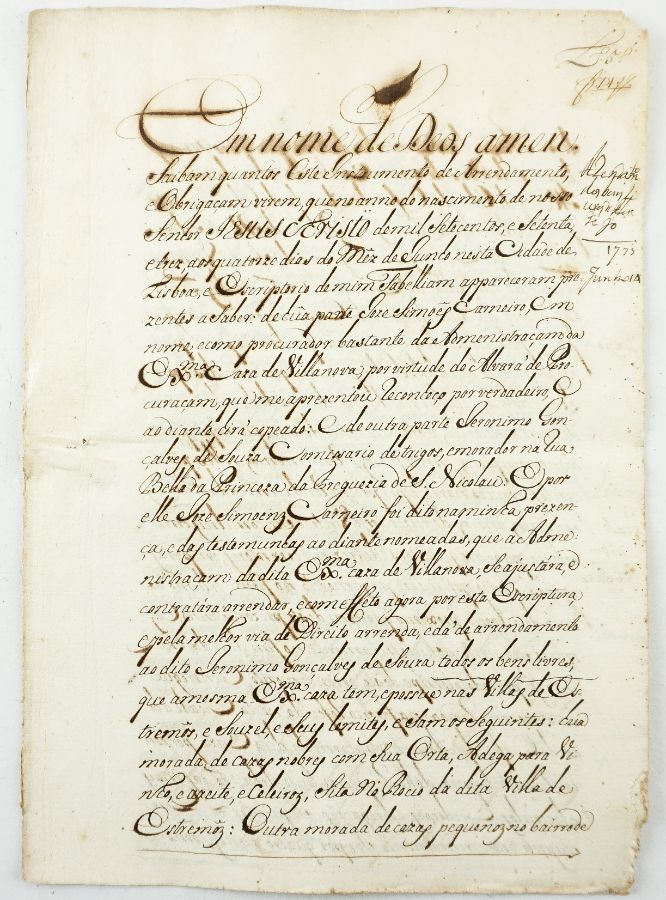 Em nome de Deos amen.
Saibam quantos este Instrumento de Arrendamento,
e Obrigaçam virem, que no anno do nascimento de nosso
Senhor JESUS CHRISTO de mil Setecentos, e Setenta,
e trez, aos quatorze dias do Mêz de Junho nesta Cidade de
Lisboa, e Escriptorio de mim Tabelliam appareceram pre-
zentes a Saber: de hũa parte Joze Simoẽs Carneiro, Em
nome, e como procurador bastante da Admenistraçam da
Exma. Caza de Villanova, por virtude do Alvará de Pro-
curaçam, que me aprezentou, Reconheço por verdadeiro, E
ao diante hirá copeado: E de outra parte Jeronimo Gon-
çalves de Souza Comissario de trigos, e morador na Rua
Bella da Princeza da Freguezia de S. Nicolau: E por
elle Joze Simoens Carneiro foi dito na minha prezen-
ça, e das testemunhas ao diante nomeadas, que a Adme-
nistraçam da dita Exma. caza de Villanova, Se ajustára, e
contratára arrendar, e com effeto agora por esta Escriptura,
e pela melhor via de Direito arrenda, e dá de arrendamento
ao dito Jeronimo Gonçalves de Souza todos os bens livres,
que a mesma Exma. caza tem, e possue nas Villas de Es-
tremôs, e Souzel, e Seus lemites, e Sam os Seguintes: hũa
morada de cazas nobres com Sua Orta, Adega para Vi-
nho, e azeite, e Celeiros, Sita No Rocio da dita Villa de
Estremôs: Outra morada de cazas pequenas no bairro de
1773
Junho 14